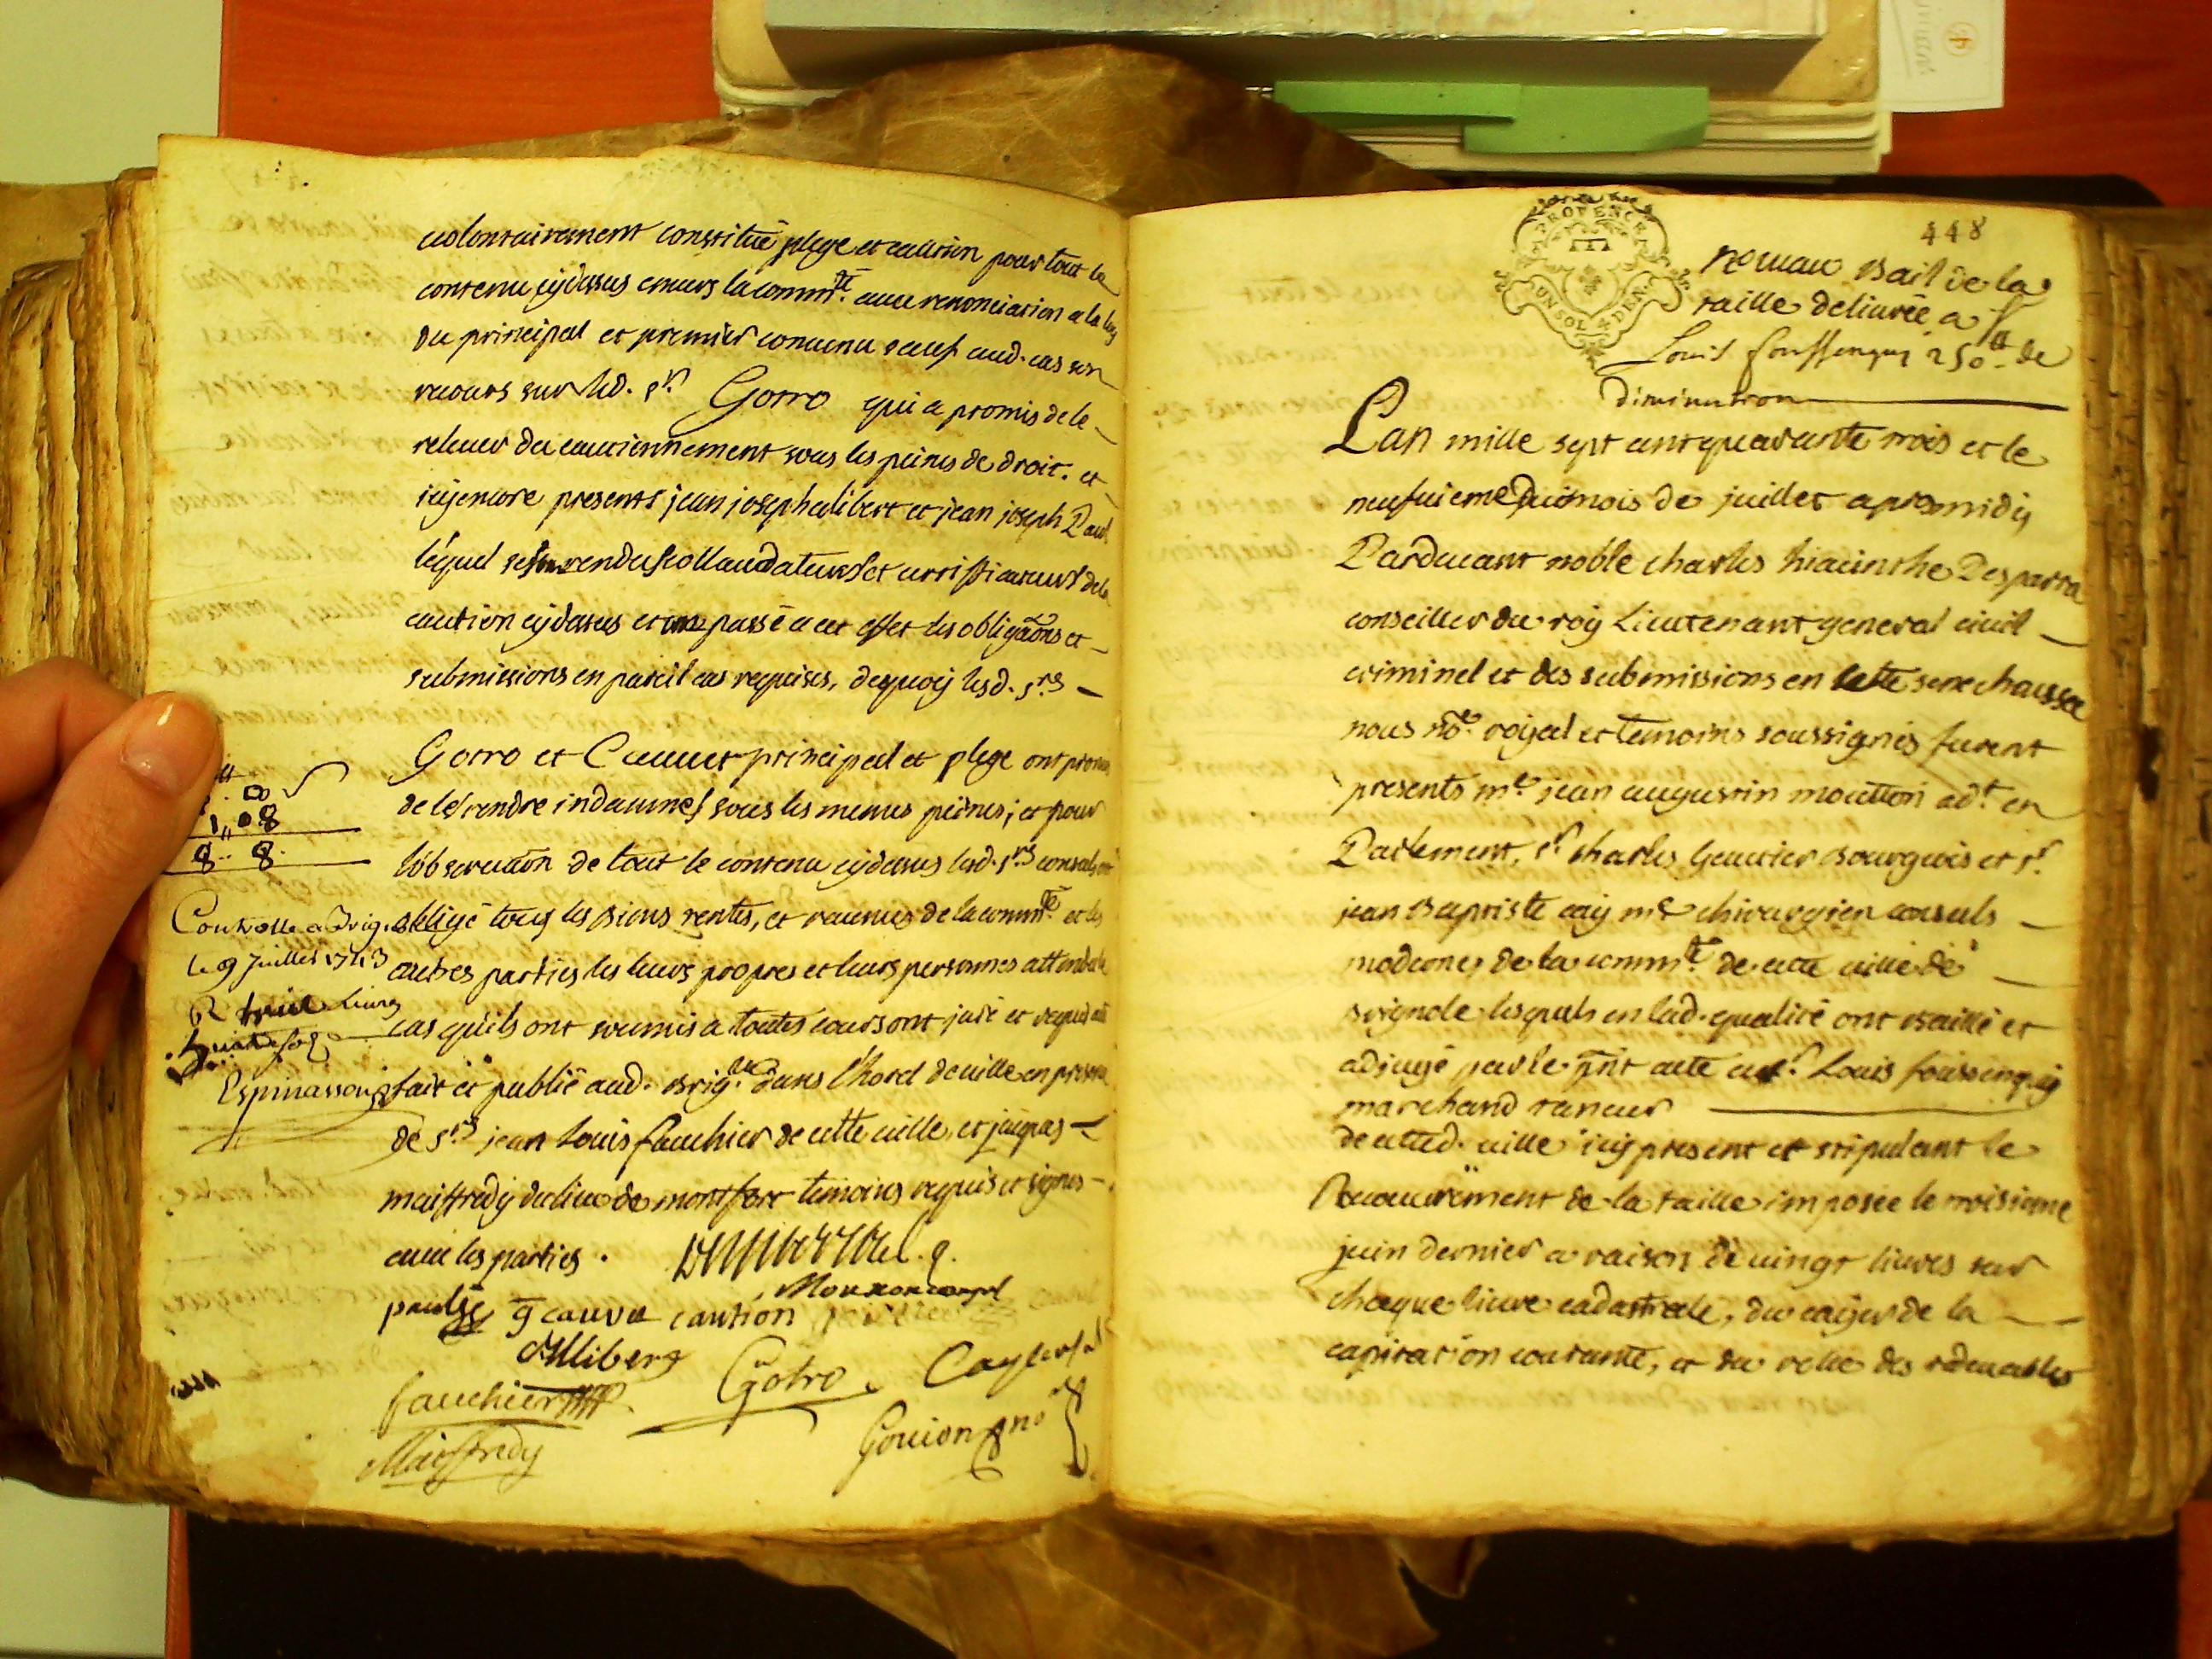 volontairement constitué plege et caution pour tout le
contenu cydessus envers la commté. avec renonciation a la loy
du principal et premier convenu sauf aud. cas son
recours sur led. sr. Gorro qui a promis de le
relever du cautionnement sous les peines de droit. et
icy encore presents jean joseph alibert et jean joseph Paul
lequel se rendus collaudateurs et certificateurs de la
caution cydessus et ont passé a cet effet les obligaons et
submissions en pareil cas requises, dequoy lesd. srs
Gorro et Cauvet principal et plege ont promis
de les rendre indamnes sous les memes peines; et pour
lobservaon de tout le contenu cydessus lesd. srs consuls ont
obligé tous les biens rentes, et revenus de la commté. et les
autres parties les leurs propres et leurs personnes attendu le
cas quils ont soumis a toutes cours ont juré et requis acte
fait et publié aud. brigle. dans l'hotel de ville en presence
de srs jean Louis fauchier de cette ville, et jaques
maiffredy du lieu de montfort temoins requis et signes
avec les parties.
Mouttoncongul
paulge g cauvet caution
d'Alliberg
fauchier Gotro Cayconsul
Maiffredy Gouion no
8
1,, 08
8.. 8.
Controlle a Brig.
le 9 juillet 1743
R huit livres
huit sols
Espinassous
PROVENCE
UN SOL 4 DEN.
448
nouveau Bail de la
taille delivrée a sr
Louis foussenquy 250tt de
diminution
Lan mille sept cent quarante trois et le
neufvieme du mois de juillet apresmidy
Pardevant noble charles hiacinthe Desparra
conseiller du roy Lieutenant general civil
criminel et des submissions en cette senechaussée
nous nore. royal et temoins soussignés furent
presents me. jean augustin moutton adt. en
Parlement, sr charles Gautier Bourgeois et sr.
jean Baptiste cay me chirurgien consuls
modernes de la commté. de cette ville de
brignole lesquels en lad. qualité ont baillé et
adjugé par le pnt acte au sr. Louis fouissenquy
marchand taneur
de cetted. ville icy present et stipulant le
Recouvrement de la taille imposée le troisieme
juin dernier a raison de vingt livres sur
chaque livre cadastrale, du cayer de la
capitation courante, et du rolle des redevables